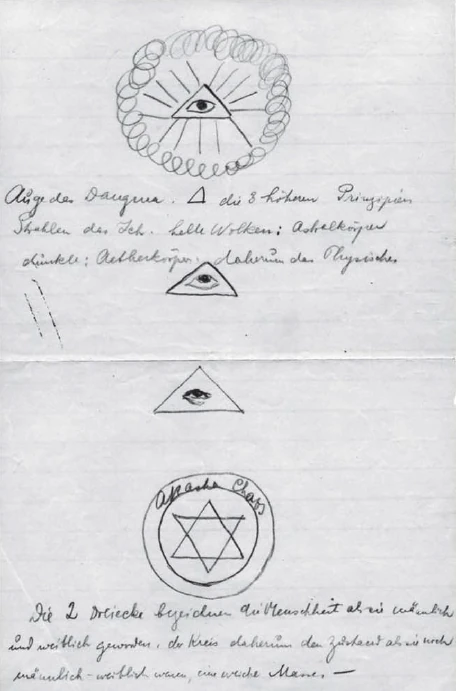 Auge des Dangma. △ die 3 höheren Prinzipien
Strahlen das Ich. helle Wolken: Astralkörper
dunkle: Aetherkörper. daherum das Physische
Akasha Chaos
Die 2 Dreiecke bezeichnen die Menschheit als sie männlich
und weiblich geworden, der Kreis daherum den Zustand als sie noch
männlich-weiblich waren, eine weiche Masse. —